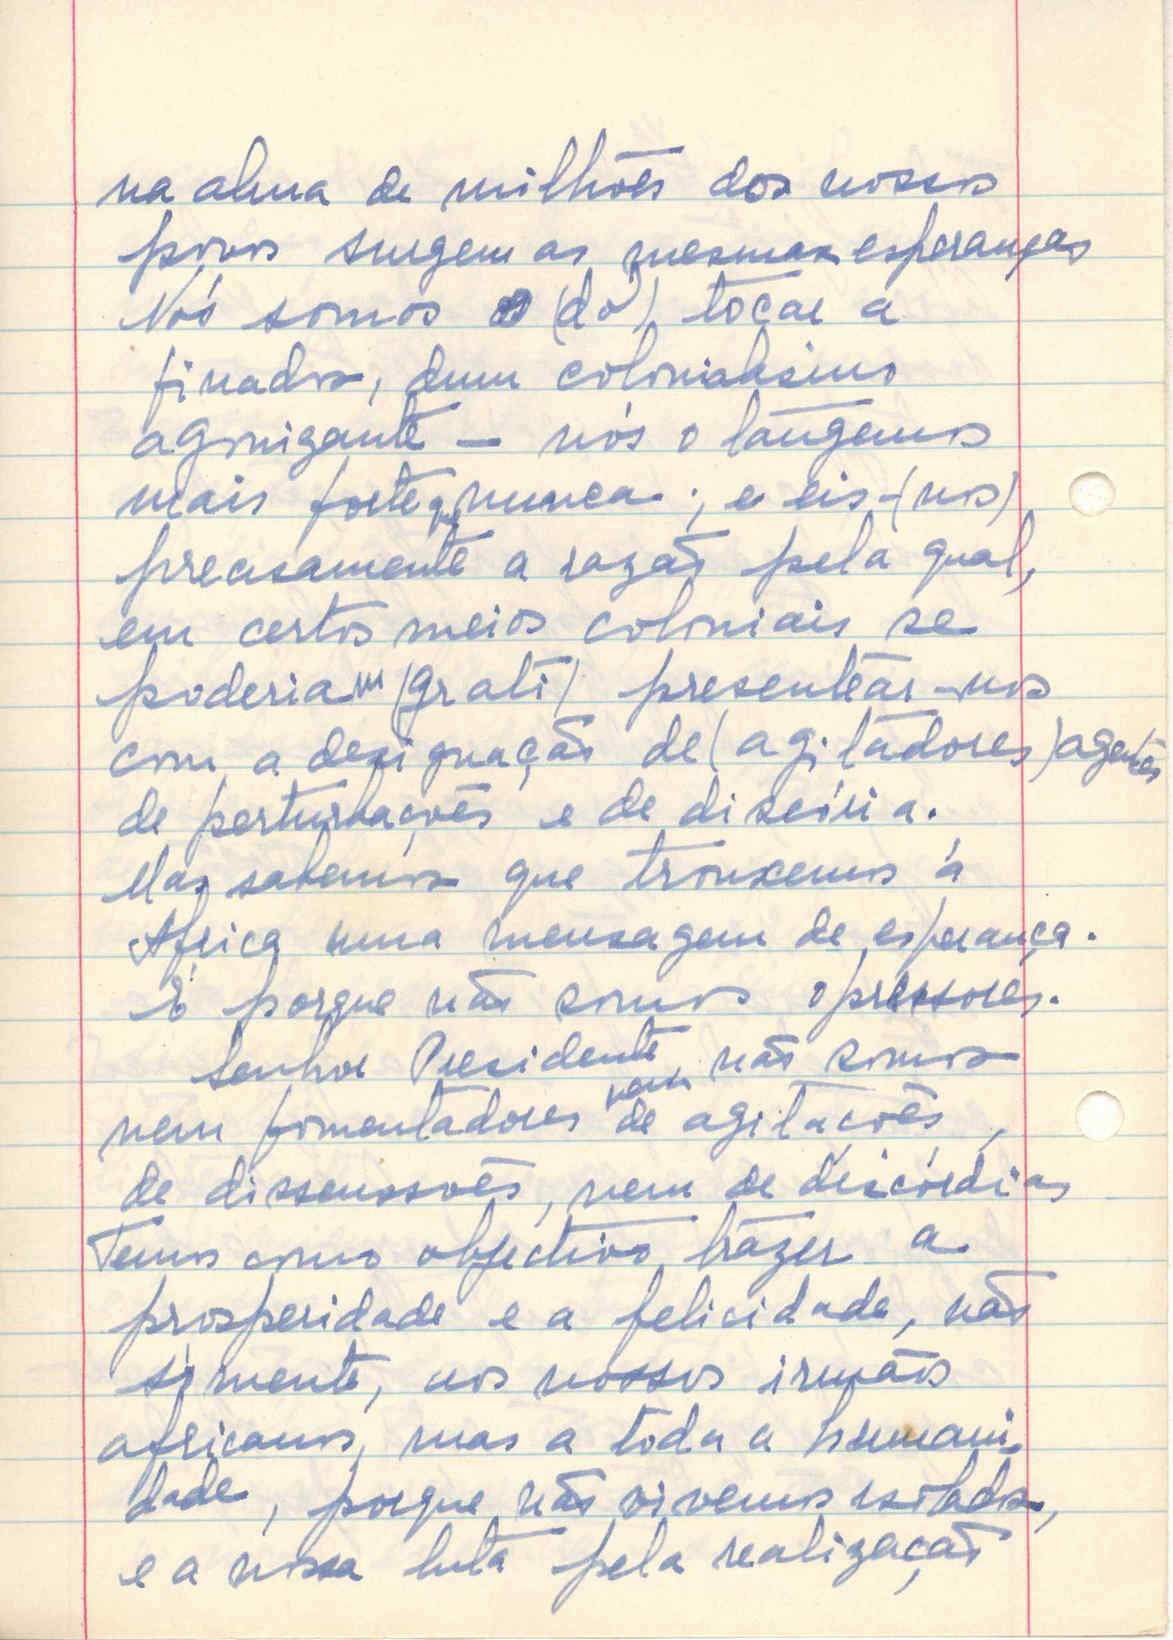 na alma de milhões dos nossos
povos surgem as mesmas esperanças
Nós somos (do) tocar a
finados, dum colonialismo
agonizante – nós o tangemos
mais forte q nunca ; e eis-(nos)
precisamente a razão pela qual,
em certos meios coloniais se
poderiam (grati) presentear-nos
com a designação de (agitadores) agentes
de perturbações e de discórdia.
Mas sabemos que trouxemos à
África uma mensagem de esperança.
É porque não somos opressores.
Senhor Presidente, não somos
nem fomentadores nem de agitações,
de dissenssões, nem de discórdias
Temos como objectivo trazer a
prosperidade e a felicidade, não
sòmente, aos nossos irmãos
africanos, mas a toda a humani
dade, porque não vivemos isolados,
e a nossa luta pela realização